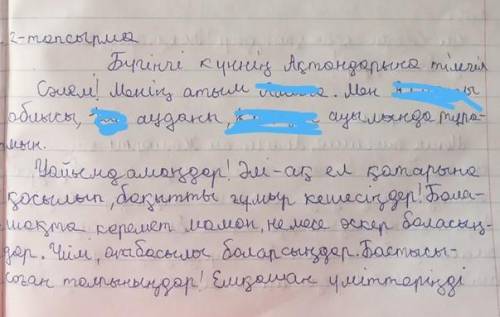 2-тапсырма
Бүгінгі күннің Ақтандарына тілегім
Сәлем! Менің атым. Мен
облысы, ауданы, ауылында тұра-
мын.
Уайымдамаңдар! Әлі-ақ ел қатарына
қосылып, бақытты ғұмыр кешесіңдер! Бола-
шақта керемет маман, немесе әскер боласың-
дар. Үйлі, отбасылы боларсыңдар. Бастысы-
соған талпыныңдар! Ешқашан үміттеріңді